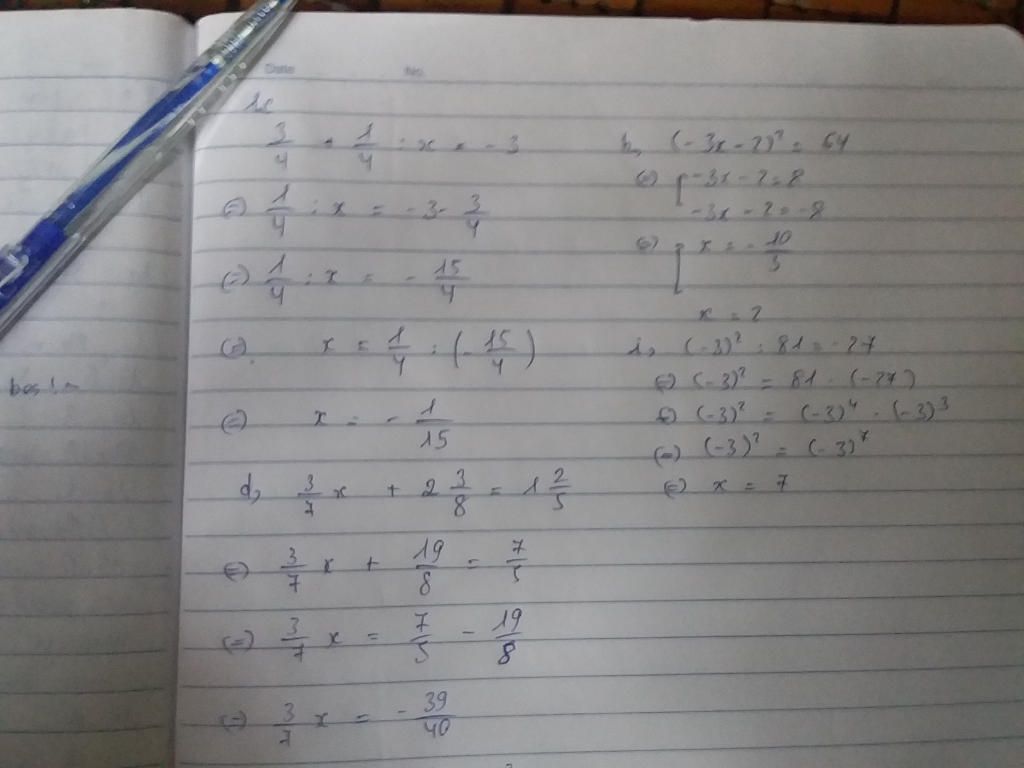 Date No.
1c
3/4 + 1/4 : x = -3
(=) 1/4 : x = -3 - 3/4
(=) 1/4 : x = - 15/4
(=) x = 1/4 : (- 15/4)
(=) x = - 1/15
d, 3/7 x + 2 3/8 = 1 2/5
(=) 3/7 x + 19/8 = 7/5
(=) 3/7 x = 7/5 - 19/8
(=) 3/7 x = - 39/40
h, (-3x - 2)² = 64
(=) [ -3x - 2 = 8
-3x - 2 = -8
(=) [ x = - 10/3
x = 2
i, (-3)ˣ : 81 = -27
(=) (-3)ˣ = 81 . (-27)
(=) (-3)ˣ = (-3)⁴ . (-3)³
(=) (-3)ˣ = (-3)⁷
(=) x = 7